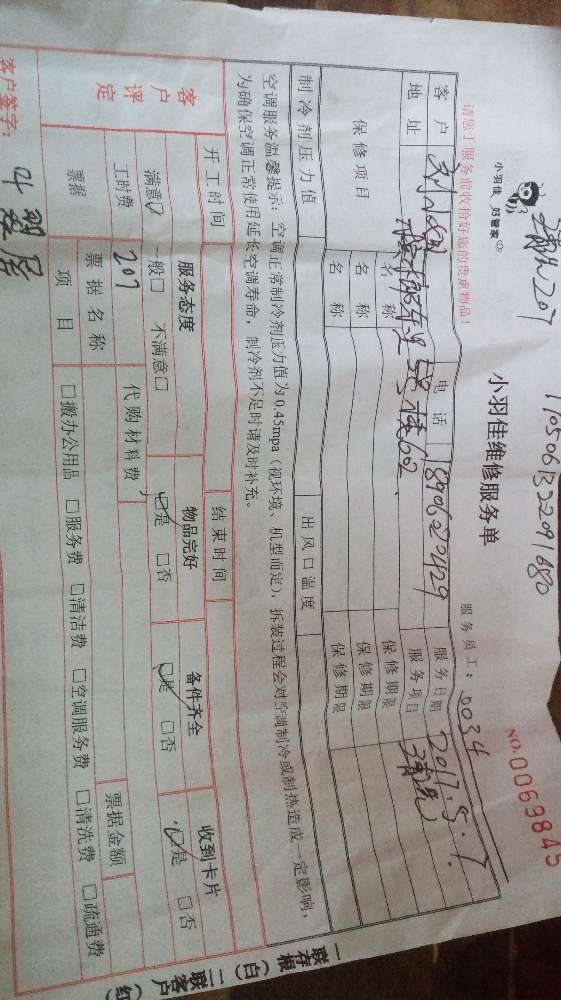 110506132291680
清洗207
小羽佳 好管家
小羽佳维修服务单
服务员工：0034
NO.0069845
请您于服务前收拾好您的贵重物品！
客户 电话 18906220429 服务日期 2017.5.7
地址 服务项目 清洗
保修项目 名称 保修期限
名称 保修期限
名称 保修期限
制冷剂压力值 出风口温度
空调服务温馨提示：空调正常制冷剂压力值为0.45mpa（视环境、机型而定），拆装过程会对空调制冷或制热造成一定影响，
为确保空调正常使用延长空调寿命，制冷剂不足时请及时补充。
开工时间 结束时间
客户评定 服务态度 物品完好 备件齐全 收到卡片
满意☑ 一般□ 不满意□ ☑是 □否 ☑是 □否 ☑是 □否
工时费 207 代购材料费 票据金额
票据 票据名称
项目 □搬办公用品 □服务费 □清洁费 □空调服务费 □清洗费 □疏通费
客户签字：
一联存根（白） 二联客户（红